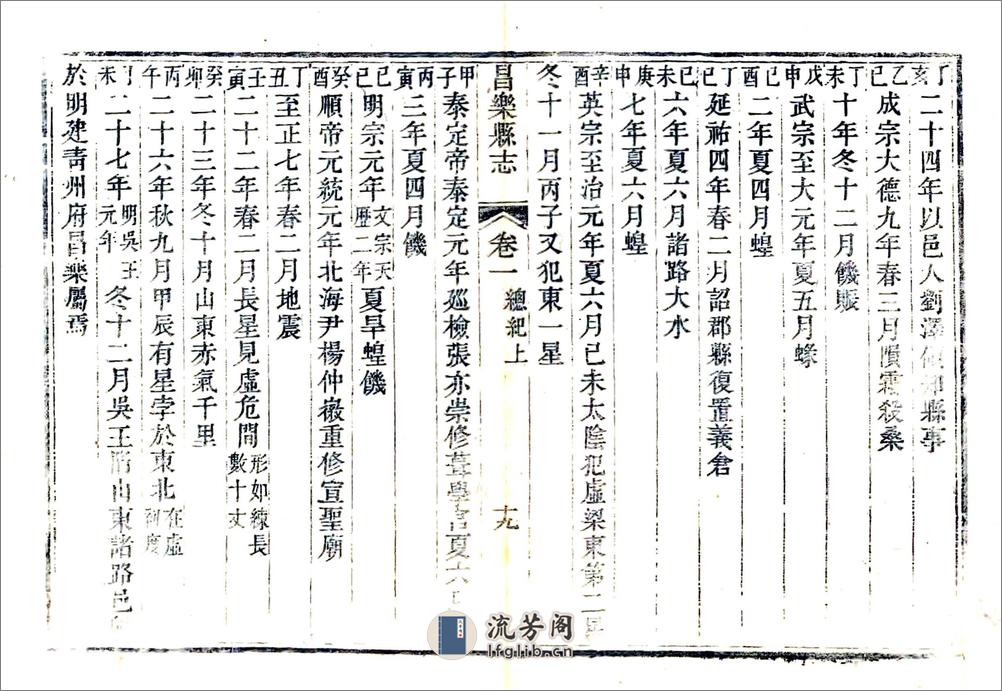 丁亥二十四年以邑人劉澤 知縣事
乙巳成宗大德九年春三月隕霜殺桑
丁未十年冬十二月饑賑
戊申武宗至大元年夏五月蝝
己酉二年夏四月蝗
丁巳延祐四年春二月詔郡縣復置義倉
己未六年夏六月諸路大水
庚申七年夏六月蝗
辛酉英宗至治元年夏六月己未太陰犯虛梁東第二
冬十一月丙子又犯東一星
昌樂縣志 卷一 總紀上 十九
甲子泰定帝泰定元年廵檢張亦崇修葺學宫夏六
丙寅三年夏四月饑
己巳明宗元年文宗天歷二年夏旱蝗饑
癸酉順帝元統元年北海尹楊仲徽重修宣聖廟
丁丑至正七年春二月地震
壬寅二十二年春二月長星見虛危間形如練長數十丈
癸卯二十三年冬十月山東赤氣千里
丙午二十六年秋九月甲辰有星孛於東北在虛 度
丁未二十七年明吳王元年冬十二月吳王 山東諸路邑
於明建青州府昌樂屬焉
流芳阁
lfglib.cn